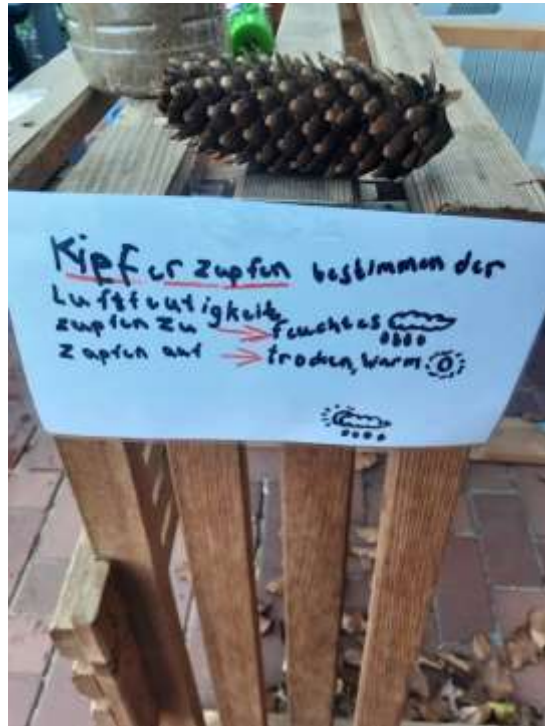 Kipfer zapfen bestimmen der
Luftfeutigkeit
zapfen zu → feuchtes
zapfen auf → trocken, warm